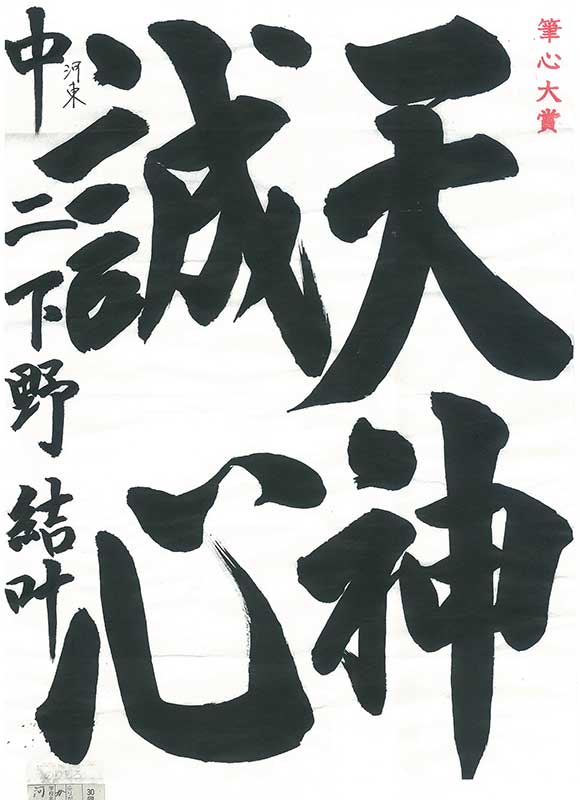 筆心大賞
天神
誠心
河東
中二下野結叶